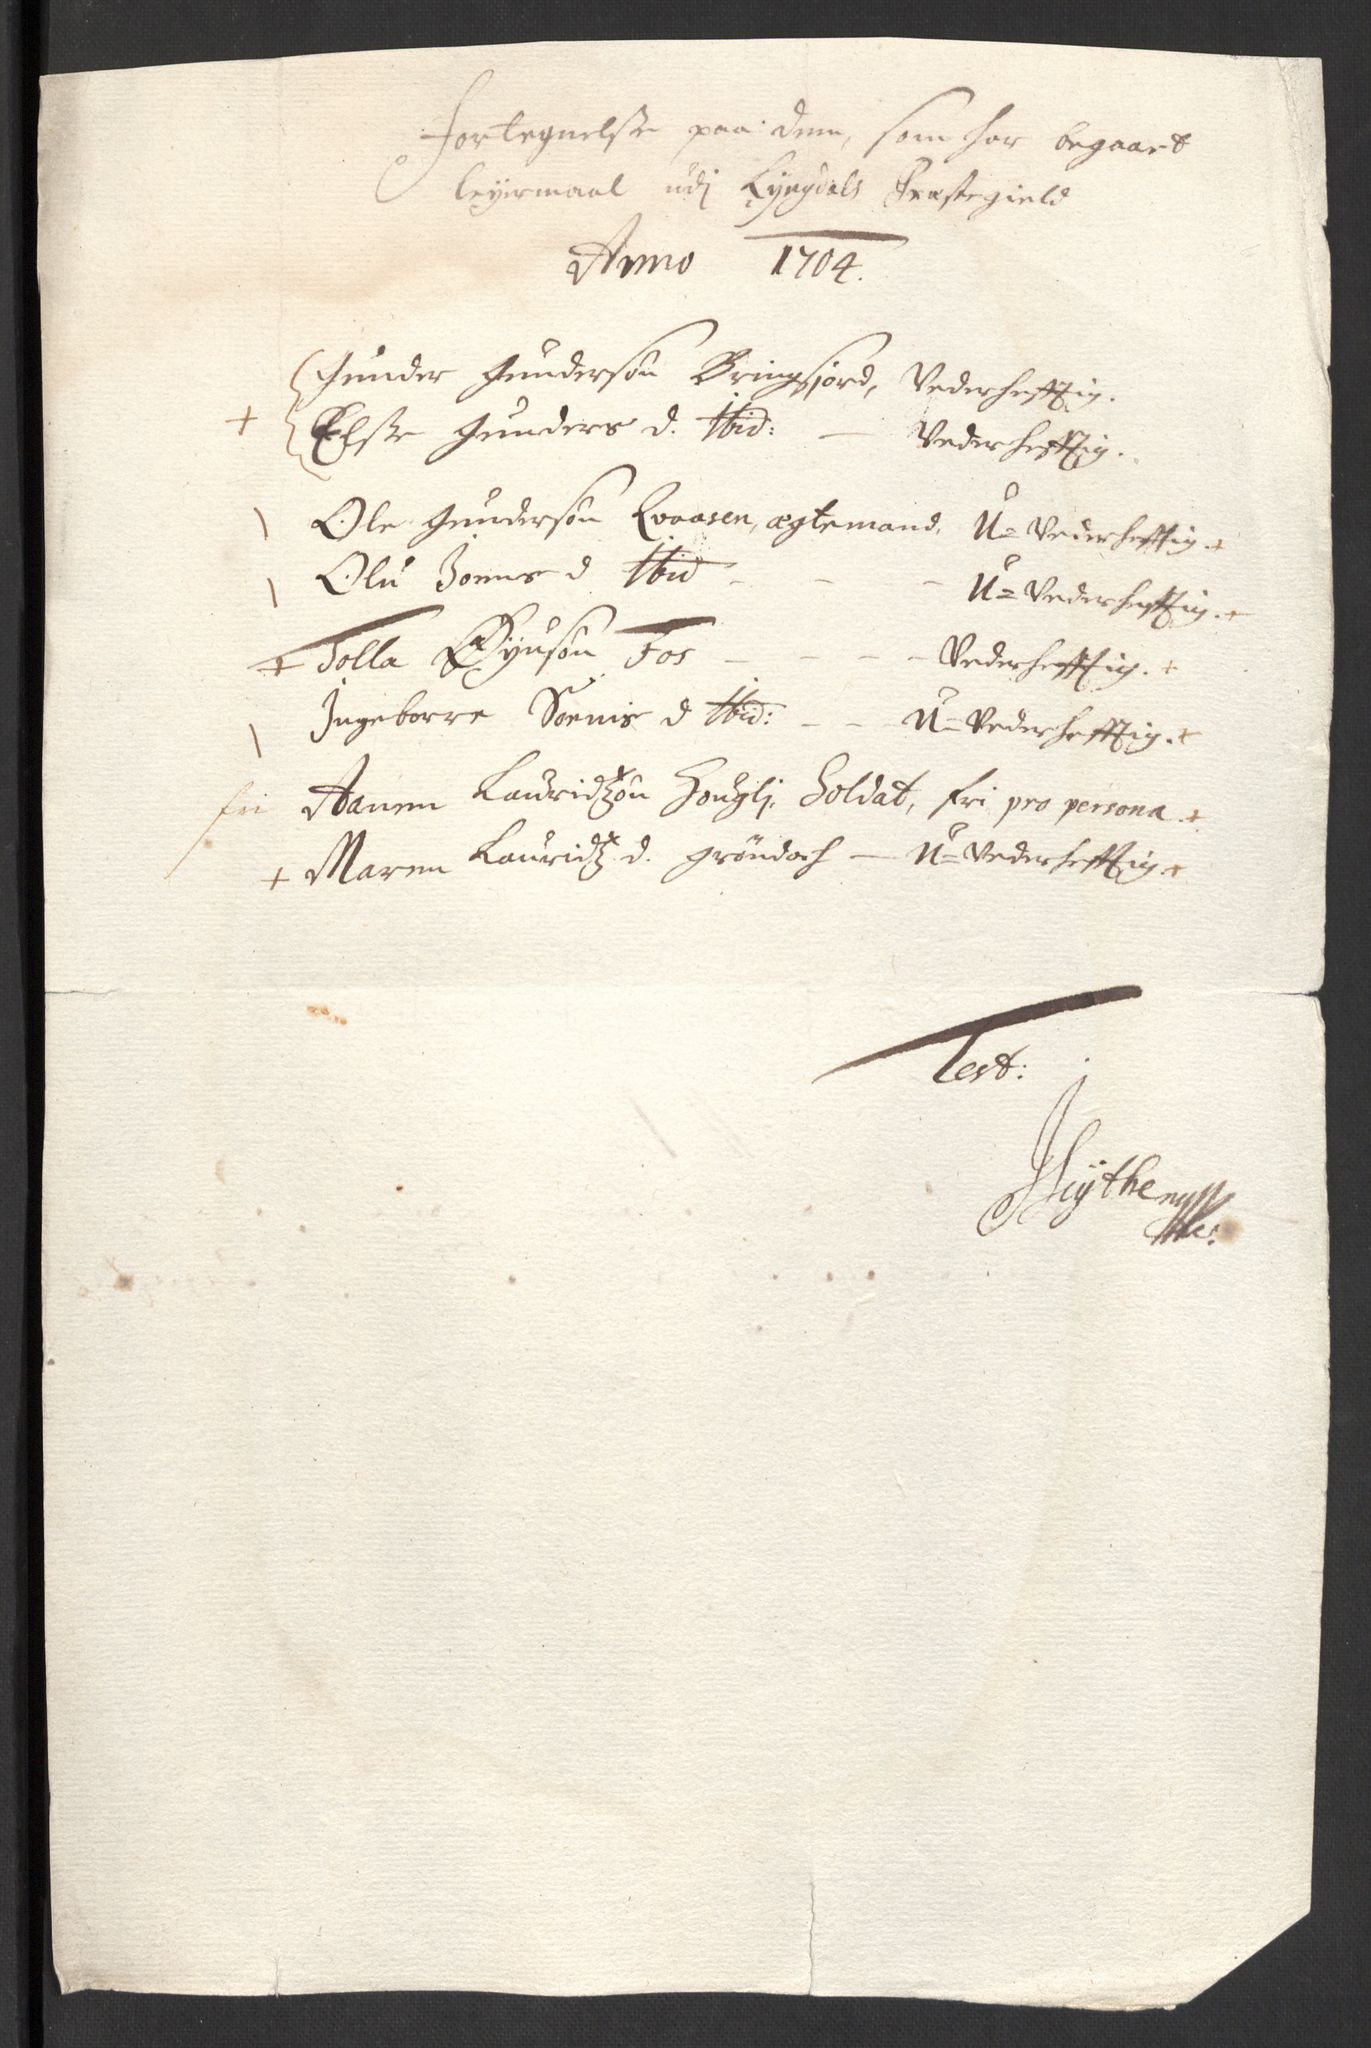 Fortegnelse paa dem, som har begaaet
leyermaal udj Lyngdals Præstegield
Anno 1704.
Gunder Gundersøn Bringsjord, Vederhefftig.
+ Else Gunders d. Ibid: — Vederhefftig.
\ Ole Gundersøn Qvaasen, ægtemand, U= Vederhefftig. +
\ Olu Joens d Ibid - - - U= Vederhefftig. +
+ Tolla Øÿusøn Fos - - - - Vederhefftig. +
\ Ingeborre Soenis d Ibid: - - - U= Vederhefftig. +
fri Aanen Lauridtzøn Hougli, Soldat, fri pro persona +
+ Maren Lauridtz d. Grøndoch — U= Vederhefftig +
Test: